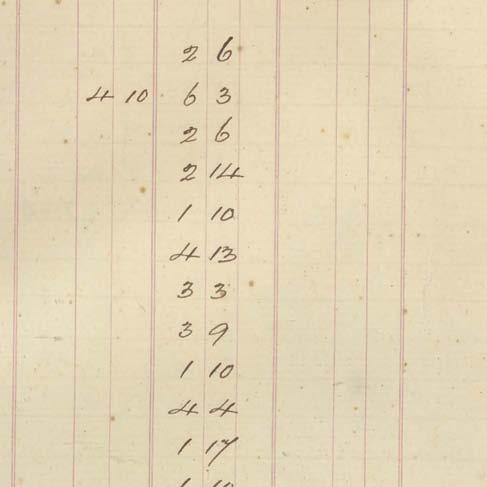 2 6
4 10 6 3
2 6
2 14
1 10
4 13
3 3
3 9
1 10
4 4
1 17
1 10